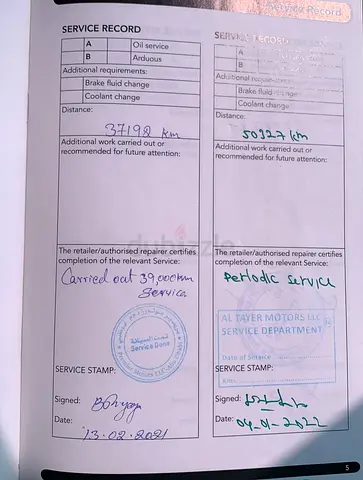 Service Record
SERVICE RECORD
A Oil service
B Arduous
Additional requirements:
Brake fluid change
Coolant change
Distance:
37198 km
Additional work carried out or
recommended for future attention:
The retailer/authorised repairer certifies
completion of the relevant Service:
Carried out 39,000km
Service
تمت الصيانة
Service Done
SERVICE STAMP:
Signed:
Date:
13-02-2021
SERVICE RECORD
A
B
Additional requirements:
Brake fluid change
Coolant change
Distance:
50327 km
Additional work carried out or
recommended for future attention:
The retailer/authorised repairer certifies
completion of the relevant Service:
Periodic service
AL TAYER MOTORS LLC
SERVICE DEPARTMENT
Date of Service
Km
SERVICE STAMP:
Signed:
Date: 04-01-2022
dubizzle
5